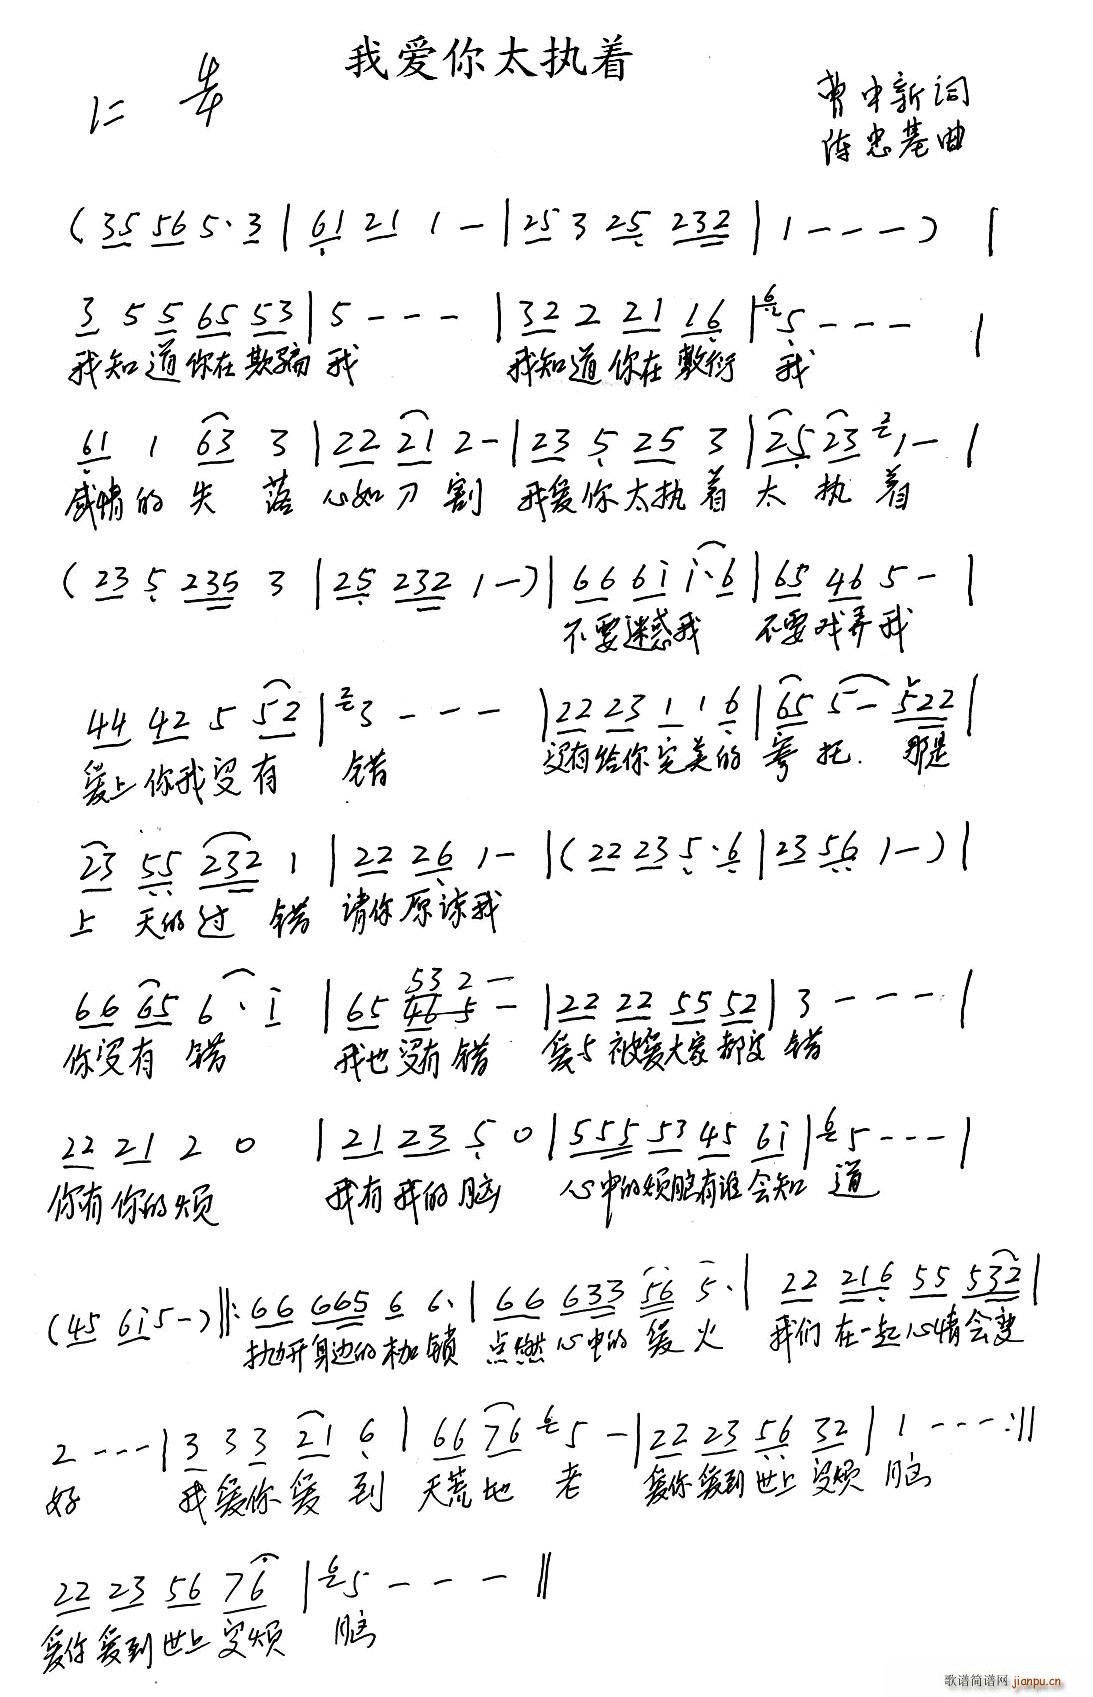 我爱你太执着
1= 4/4
曹中新词
陈忠基曲
( 35 56 5· 3 | 61 21 1 - | 25 3 25 232 | 1 - - - ) |
3 5 5 65 53 | 5 - - - | 32 2 21 16 | 6 5 - - - |
我知道你在欺骗我 我知道你在敷衍 我
61 1 63 3 | 22 21 2 - | 23 5 25 3 | 25 23 2 1 - |
感情的失 落 心如刀割 我爱你太执着 太 执 着
( 23 5 235 3 | 25 232 1 - ) | 66 6i i· 6 | 65 46 5 - |
不要迷惑我 不要戏弄我
44 42 5 52 | 2 3 - - - | 22 23 1 1 6 | 65 5 - 522 |
爱上你我没有 错 没有给你完美的 寄托. 那是
23 55 232 1 | 22 26 1 - | ( 22 23 5· 6 | 23 56 1 - ) |
上 天的过 错 请你原谅我
53 2 -
66 65 6 · i | 65 46 5 - | 22 22 55 52 | 3 - - - |
你没有 错 我也没有 错 爱与被爱大家都没 错
22 21 2 0 | 21 23 5 0 | 555 53 45 6i | 6 5 - - - |
你有你的烦 我有我的脑 心中的烦脑有谁会知 道
( 45 6i 5 - ) ‖: 66 665 6 6· | 66 633 56 5· | 22 216 55 532 |
抛开身边的枷锁 点燃心中的爱火 我们在一起心情会变
2 - - - | 3 3 3 21 6 | 66 76 6 5 - | 22 23 56 32 | 1 - - - :‖
好 我爱你爱 到 天荒地 老 爱你爱到世上没烦 脑
22 23 56 76 | 6 5 - - - ‖
爱你爱到世上没烦 脑
歌谱简谱网 jianpu.cn